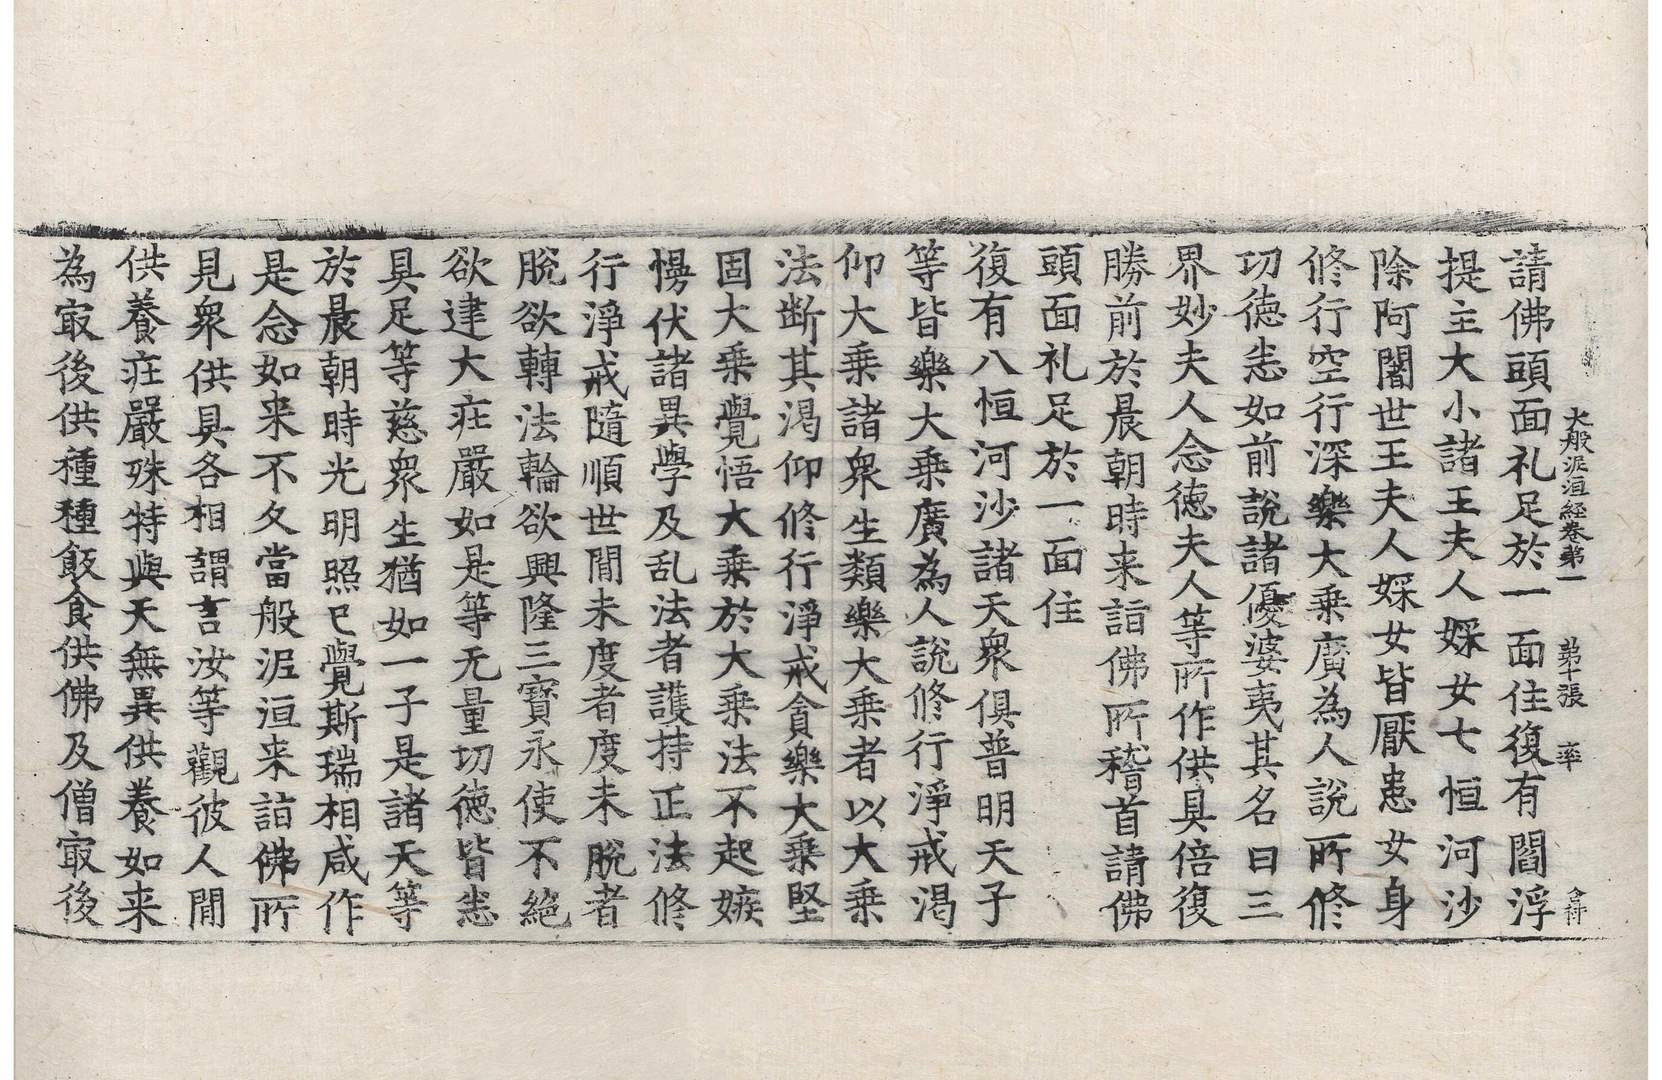 大般泥洹経卷第一 第十張 率
請佛頭面礼足於一面住復有閻浮
提主大小諸王夫人婇女七恒河沙
除阿闍世王夫人婇女皆厭患女身
修行空行深樂大乗廣為人說所修
切德恙如前說諸優婆夷其名曰三
界妙夫人念德夫人等所作供具倍復
勝前於晨朝時来詣佛所稽首請佛
頭面礼足於一面住
復有八恒河沙諸天衆俱普明天子
等皆樂大乗廣為人說修行淨戒渇
仰大乗諸衆生類樂大乗者以大乗
法断其渇仰修行淨戒貪樂大乗堅
固大乗覺悟大乗於大乗法不起嫉
慢伏諸異學及乱法者護持正法修
行淨戒隨順世間未度者度未脫者
脫欲轉法輪欲興隆三寳永使不絕
欲建大庄嚴如是等无量切德皆恙
具足等慈衆生猶如一子是諸天等
於晨朝時光明照已覺斯瑞相咸作
是念如来不久當般泥洹来詣佛所
見衆供具各相謂言汝等觀彼人間
供養庄嚴殊特與天無異供養如来
為㝡後供種種飯食供佛及僧㝡後